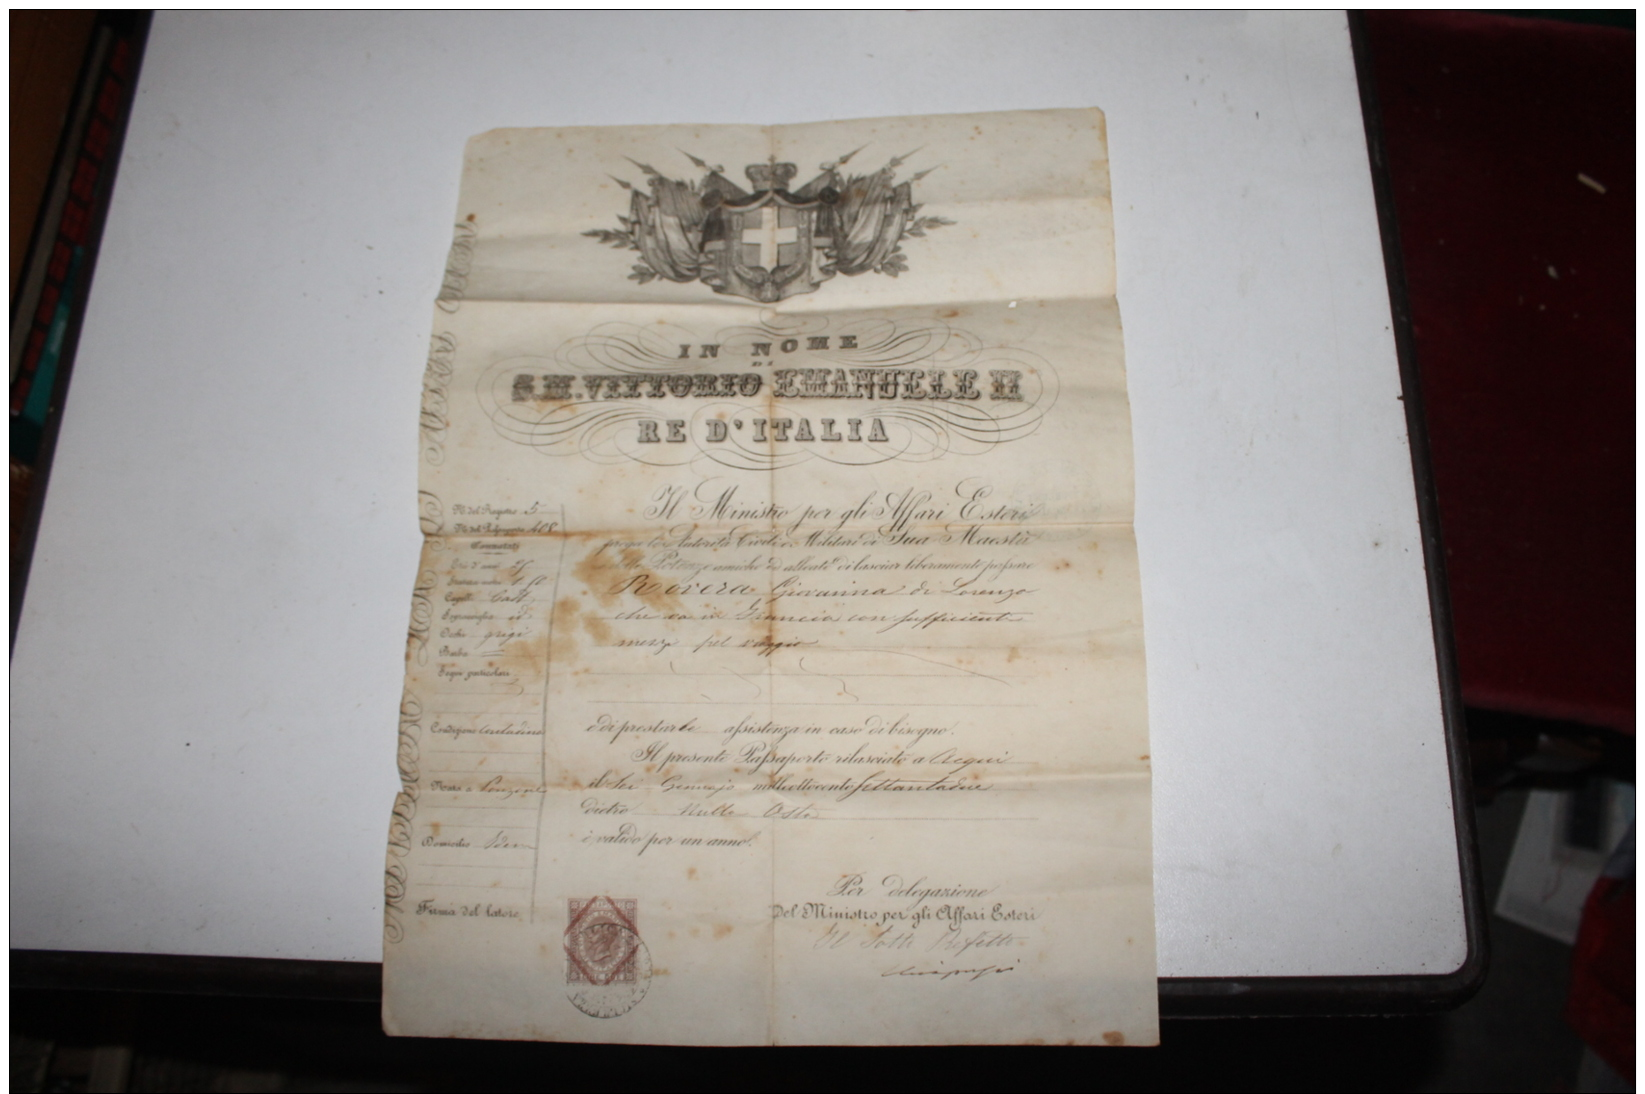 IN NOME
DI
S.M. VITTORIO EMANUELE II
RE D'ITALIA
Il Ministro per gli Affari Esteri
prega le Autorità Civili e Militari di Sua Maestà
e delle Potenze amiche ed alleate di lasciar liberamente passare
Rovera Giovanna di Lorenzo
che va in Francia con sufficienti
mezzi pel viaggio
e di prestarle assistenza in caso di bisogno.
Il presente Passaporto rilasciato a Acqui
il sei Gennajo milleottocento settantadue
dietro Nulla Osta
è valido per un anno.
Per delegazione
Del Ministro per gli Affari Esteri
Il Sotto Prefetto
N. del Registro 5
N. del Passaporto
Connotati
Età d'anni
Statura metri
Capelli Cast.
Sopracciglia id
Occhi grigi
Barba
Segni particolari
Condizione contadina
Nata a Ponzone
Domicilio Idem
Firma del latore